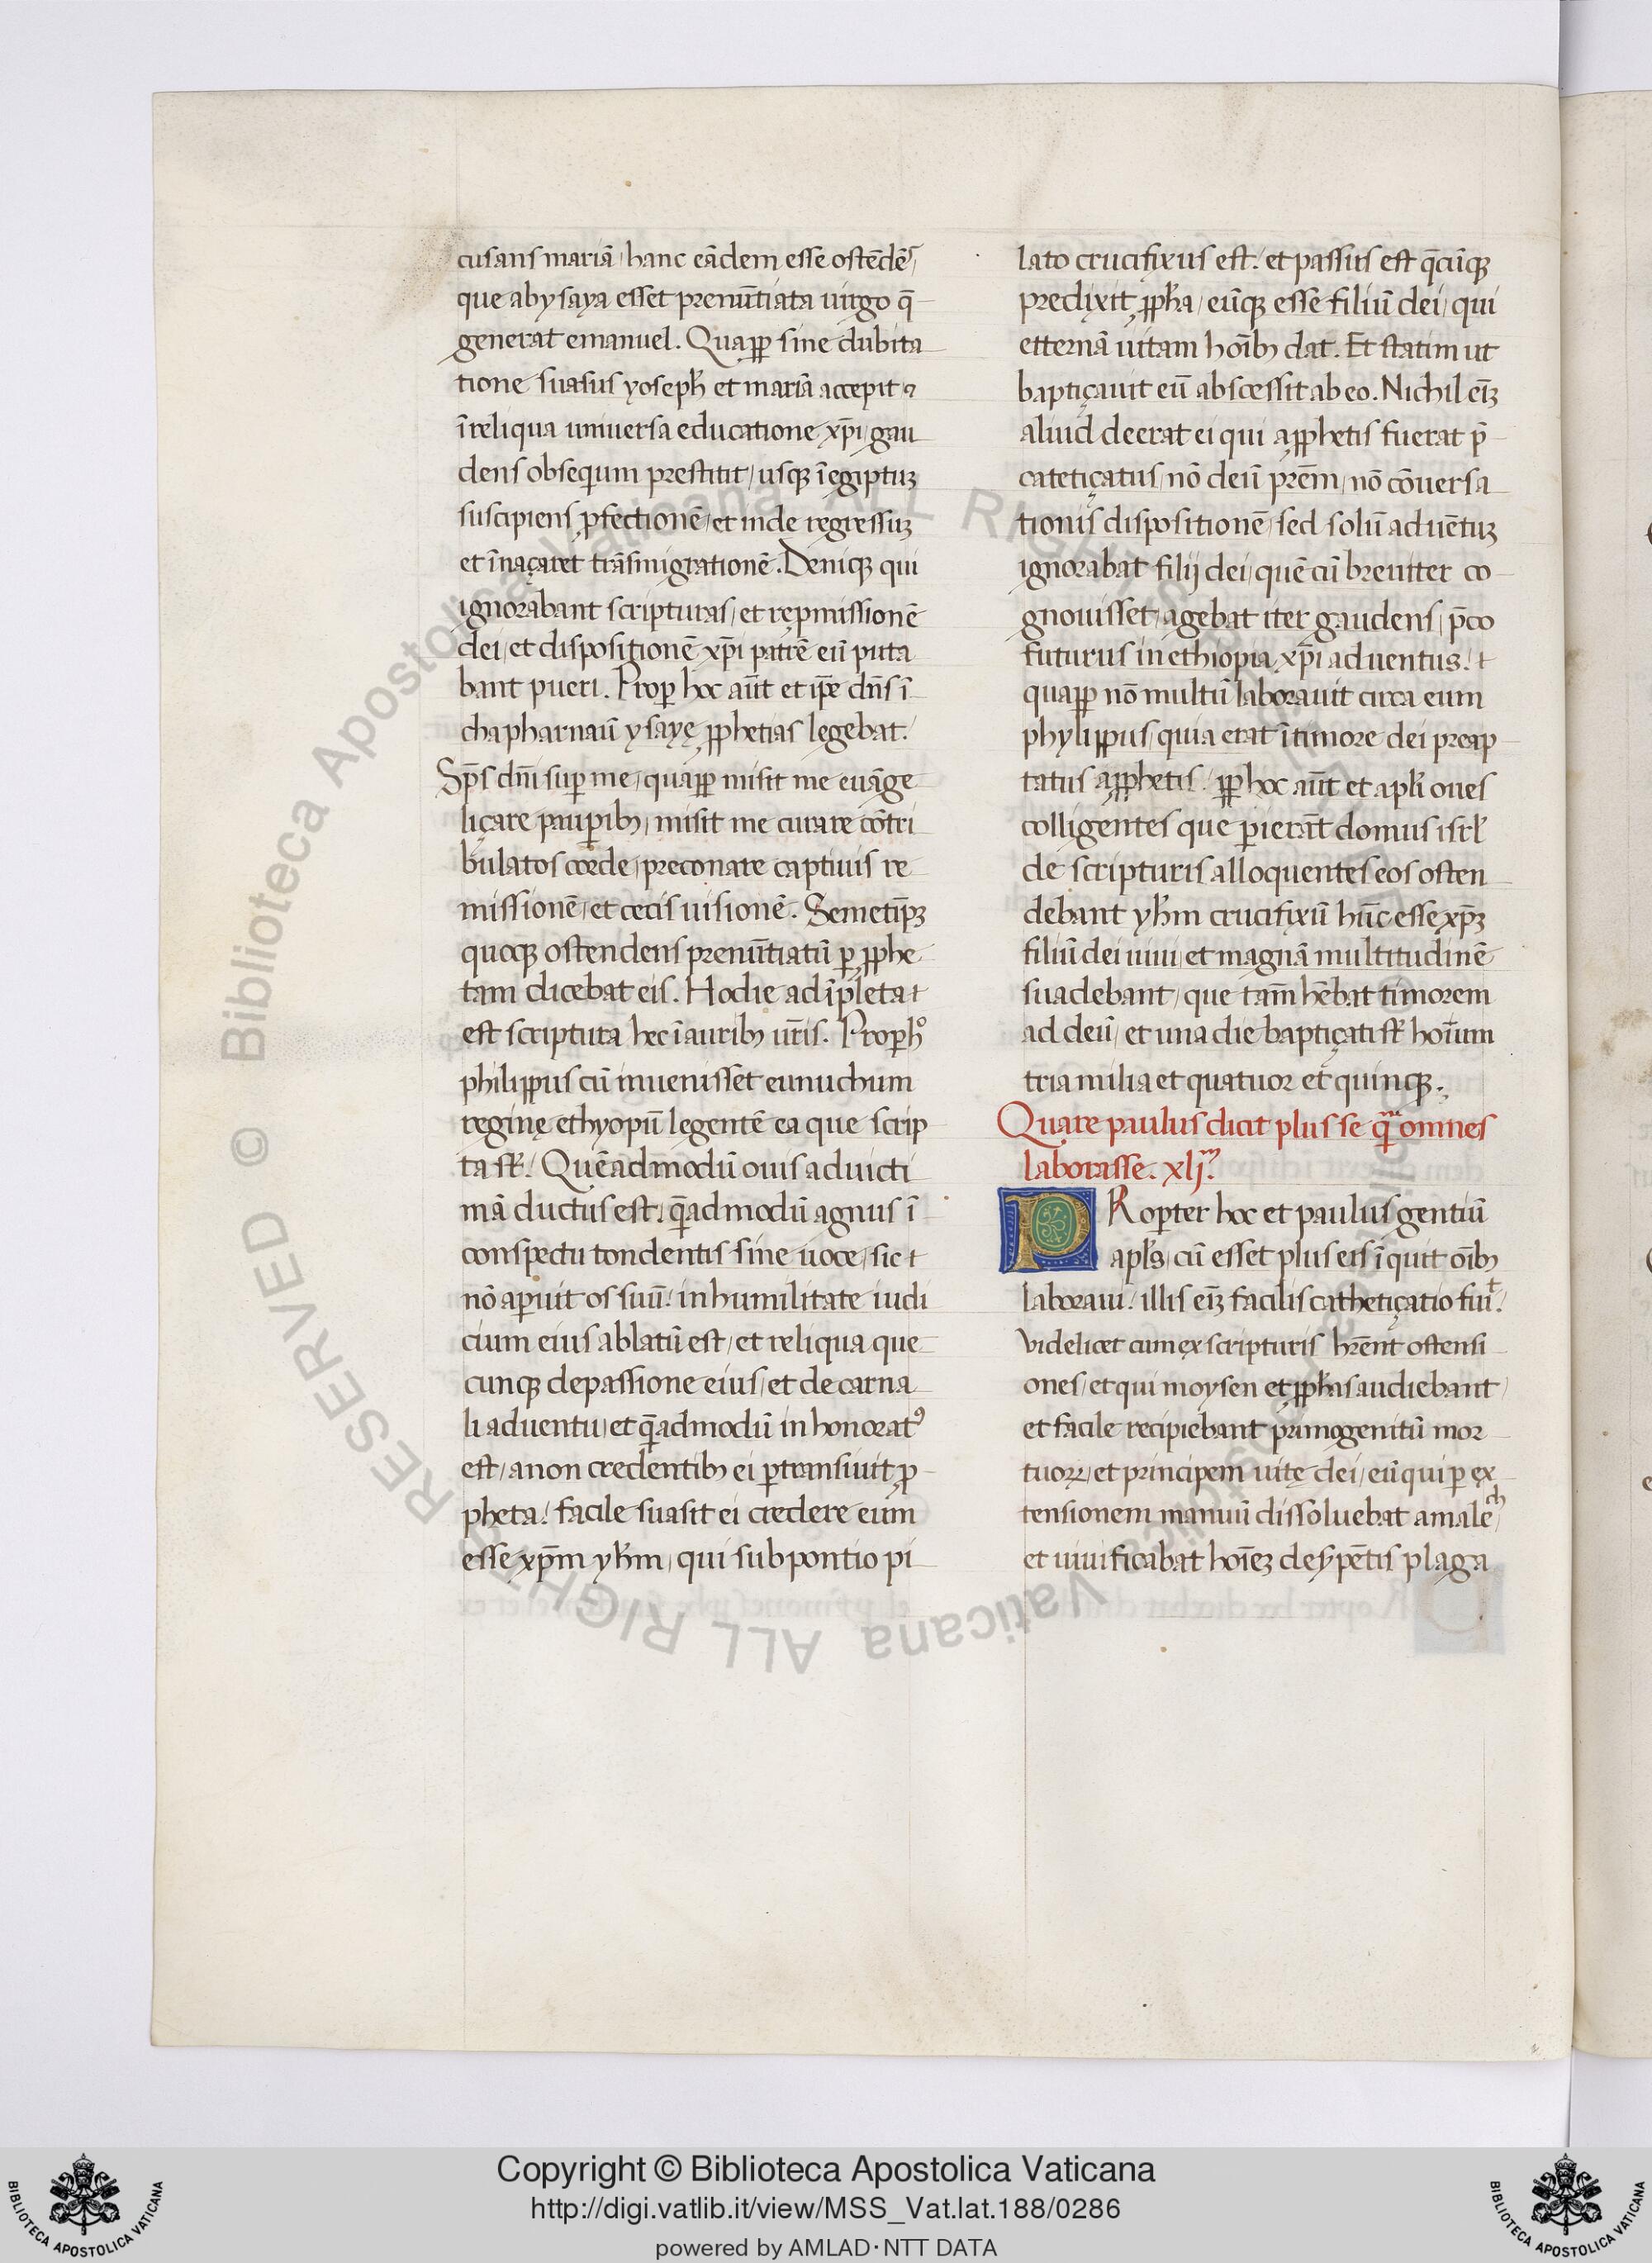 cusans mariā / hanc eādem esse ostēdēs /
que ab ysaya esset prenūtiata uirgo q̄
generat emanuel. Quapp̱ sine dubita
tione suasus yoseph et mariā accepit ⁊
ī reliqua uniuersa educatione xp̄i / gau
dens obsequium prestitit / usqꝫ ī egiptuꝫ
suscipiens ꝓfectionē / et inde regressuꝫ
et ī naçaret trāsmigrationē. Deniqꝫ qui
ignorabant scripturas / et repmissionē
dei / et dispositionē xp̄i patrē eū puta
bant pueri. Prop̱ hoc aūt et ip̄e dn̄s ī
chapharnaū ysayę ꝓphetias legebat.
Sp̄s dn̄i suꝑ me / quapp̱ misit me euāge
liçare pauꝑibꝫ / misit me curare cōtri
bulatos corde / preconare captiuis re
missionē / et cecis uisionē. Semetip̄ꝫ
quoqꝫ ostendens prenūtiatū ꝑ ꝓphe
tam dicebat eis. Hodie adīpleta
est scriptura hec ī auribꝫ ur̄is. Propꝑ hº
philippus cū inuenisset eunuchum
reginę ethyopū legentē ea que scrip
ta st̄. Quēadmodū ouis ad uicti
mā ductus est / quēadmodū agnus ī
conspectu tondentis sine uoce / sic
nō aꝑuit os suū. in humilitate iudi
cium eius ablatū est / et reliqua que
cunqꝫ de passione eius / et de carna
li aduentu / et quēadmodū inhonoratꝰ
est / a non credentibꝫ ei ꝑtransiuit ꝓ
pheta. facile suasit ei credere eum
esse xp̄m yhm̄ / qui sub pontio pi
lato crucifixus est. et passus est q̄cūqꝫ
predixit ꝓpha / eūqꝫ esse filiū dei / qui
etternā uitam hoībꝫ dat. Et statim ut
baptiçauit eū abscessit ab eo. Nichil eīꝫ
aliud deerat ei qui a ꝓphetis fuerat p̄
catetiçatus / nō deū prēm / nō cōuersa
tionis dispositionē / sed solū aduētuꝫ
ignorabat filij dei / quē cū breuiter co
gnouisset / agebat iter gaudens / p̄co
futurus in ethiopia xp̄i aduentus.
quapp̱ nō multū laborauit circa eum
phylippus / quia erat ī timore dei preap
tatus a ꝓphetis. ꝓp hoc aūt et apli oues
colligentes que ꝑierāt domus isrl
de scripturis alloquentes eos osten
debant yhm̄ crucifixū hūc esse xp̄ꝫ
filiū dei uiui / et magnā multitudinē
suadebant / que tam̄ hēbat timorem
ad deū / et una die baptiçati st̄ hoīum
tria milia et quatuor et quinqꝫ.
Quare paulus dicit plus se qͣm omnes
laborasse. xljͫ.
PRopꝑter hoc et paulus gentiū
apl̄s / cū esset plus eis īquit oībꝫ
laboraui. illis eīꝫ facilis cathetiçatio fuit.
Videlicet cum ex scripturis hr̄ent ostensi
ones / et qui moysen et ꝓphas audiebant
et facile recipiebant primogenitū mor
tuorꝝ / et principem uitę dei / eū qui ꝑ ex
tensionem manuū dissoluebat amalech /
et uiuificabat hoīeꝫ de sꝑpētis plaga
Copyright © Biblioteca Apostolica Vaticana
http://digi.vatlib.it/view/MSS_Vat.lat.188/0286
powered by AMLAD·NTT DATA
BIBLIOTECA APOSTOLICA VATICANA
BIBLIOTECA APOSTOLICA VATICANA
© Biblioteca Apostolica Vaticana ALL RIGHTS RESERVED
© Biblioteca Apostolica Vaticana ALL RIGHTS RESERVED